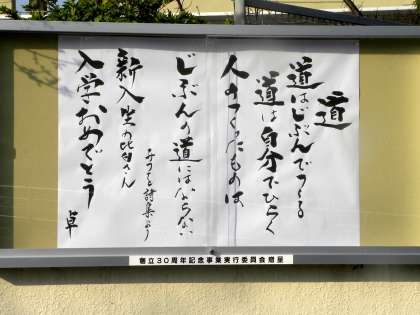 道
道はじぶんでつくる
道は自分でひらく
人のつくったものは
じぶんの道にはならない
みつを詩集より
新入生の皆さん
入学おめでとう
卓
創立30周年記念事業実行委員会贈呈